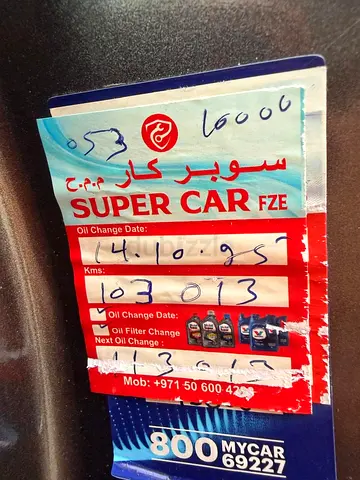 053 10000
سوبر كار م.م.ح
SUPER CAR FZE
Oil Change Date:
14.10.25
Kms:
103 013
Oil Change Date:
Oil Filter Change
Next Oil Change :
113 013
Mob: +971 50 600 42
800 MYCAR
69227